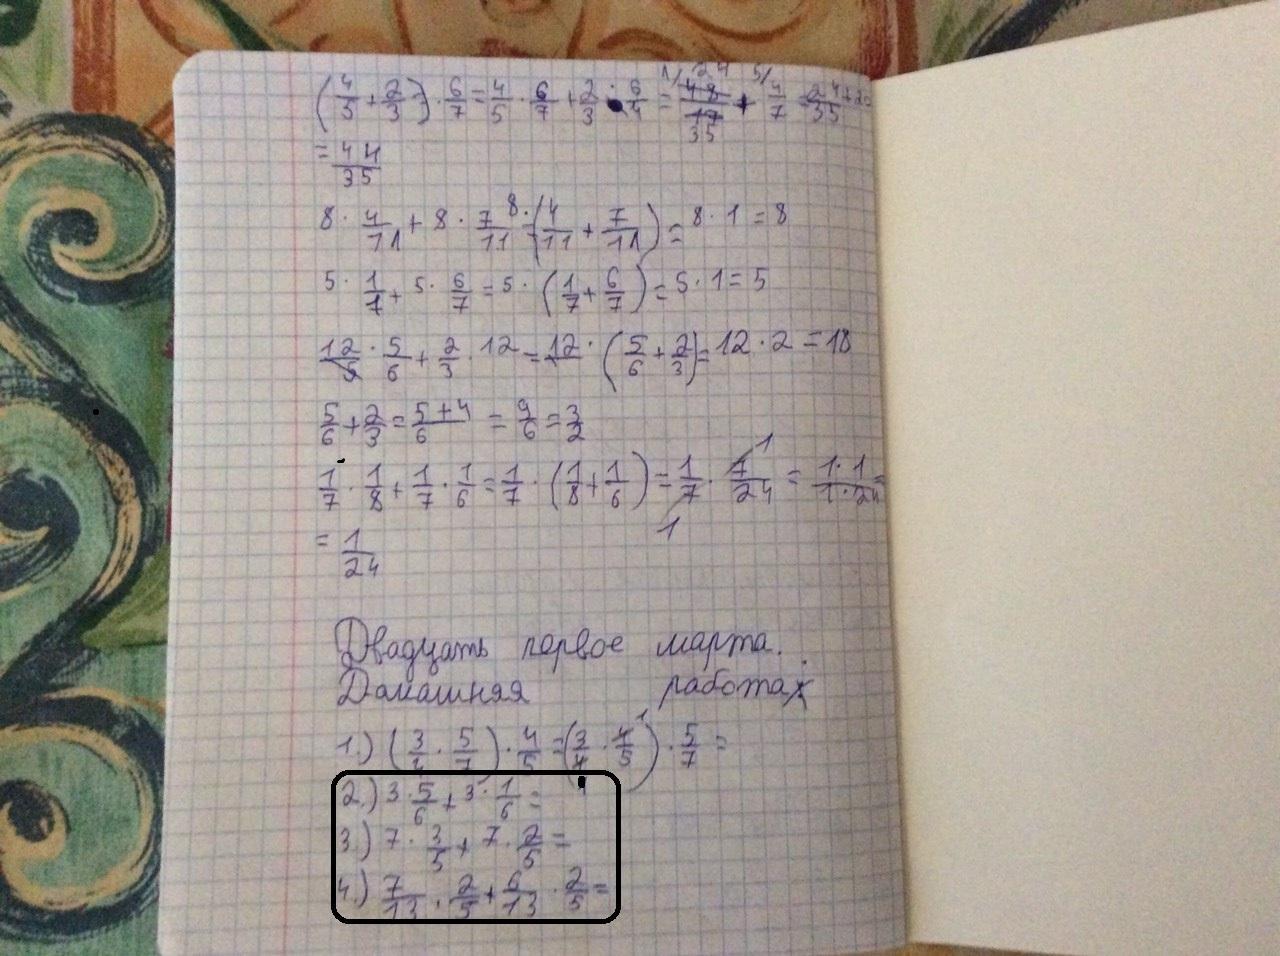 (4/5 + 2/3) · 6/7 = 4/5 · 6/7 + 2/3 · 6/4 = 24/35 + 4/7 = 24+20/35
= 44/35
8 · 4/11 + 8 · 7/11 = 8 · (4/11 + 7/11) = 8 · 1 = 8
5 · 1/7 + 5 · 6/7 = 5 · (1/7 + 6/7) = 5 · 1 = 5
12 · 5/6 + 2/3 · 12 = 12 · (5/6 + 2/3) = 12 · 2 = 18
5/6 + 2/3 = 5+4/6 = 9/6 = 3/2
1/7 · 1/8 + 1/7 · 1/6 = 1/7 · (1/8 + 1/6) = 1/7 · 7/24 = 1·1/1·24 =
= 1/24
Двадцать первое марта.
Домашняя работа
1.) (3/4 · 5/7) · 4/5 = (3/4 · 4/5) · 5/7 =
2.) 3 · 5/6 + 3 · 1/6 =
3.) 7 · 3/5 + 7 · 2/5 =
4.) 7/13 · 2/5 + 6/13 · 2/5 =